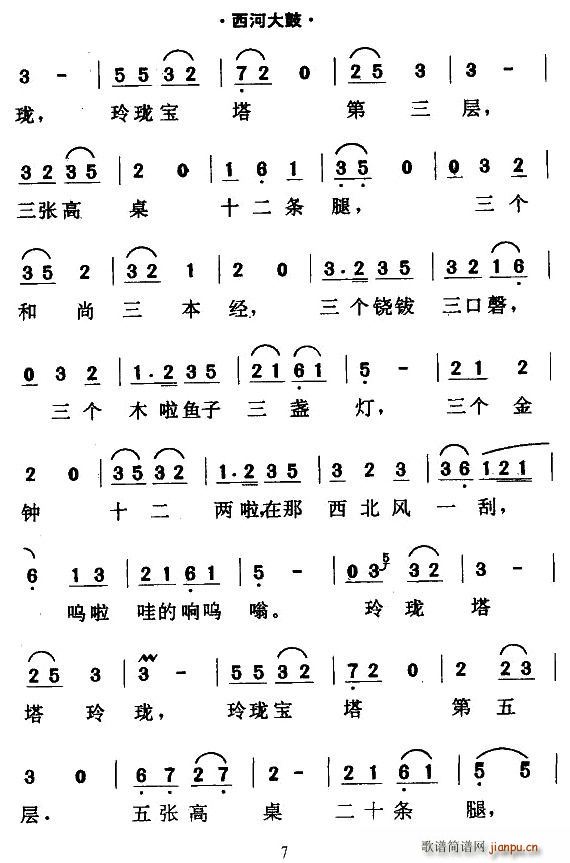 ·西河大鼓·
3 - | 5 5 3 2 | 7 2 0 | 2 5 3 | 3 - |
珑， 玲珑宝 塔 第 三 层，
3 2 3 5 | 2 0 | 1 6 1 | 3 5 | 0 3 2 |
三张高 桌 十二条 腿， 三个
3 5 2 | 3 2 1 | 2 0 | 3·2 3 5 | 3 2 1 6 |
和 尚 三 本 经， 三 个铙钹 三口磬，
0 3 2 | 1·2 3 5 | 2 1 6 1 | 5 - | 2 1 2 |
三个 木啦鱼子 三 盏 灯， 三个金
2 0 | 3 5 3 2 | 1·2 3 5 | 3 2 3 | 3 6 1 2 1 |
钟 十 二 两啦在那 西北风 一 刮，
6 1 3 | 2 1 6 1 | 5 - | 0 3 5 3 2 | 3 - |
呜啦 哇的响呜 嗡。 玲 珑 塔
2 5 3 | 3 - | 5 5 3 2 | 7 2 0 | 2 2 3 |
塔 玲 珑， 玲珑宝 塔 第 五
3 0 | 6 7 2 7 | 2 - | 2 1 6 1 | 5 5 |
层. 五张高 桌 二十条 腿，
7
歌谱简谱网
jianpu.cn